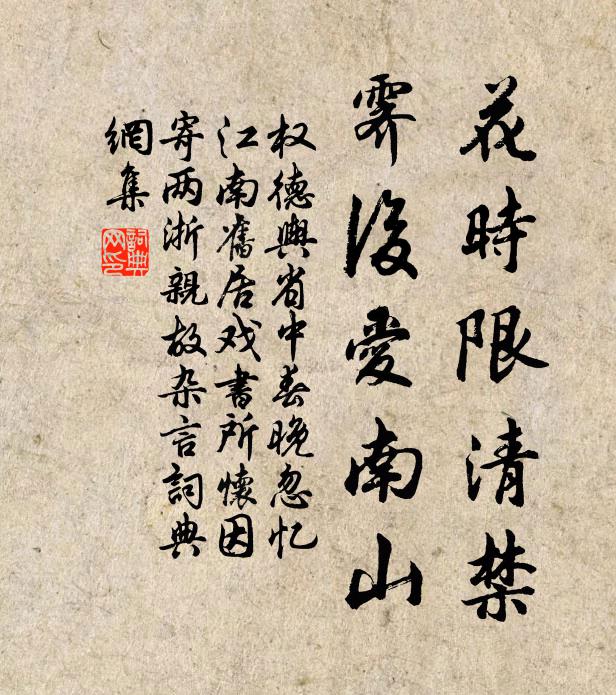 花時限清禁
霽後愛南山
权德輿省中春晚忽忆
江南舊居戏書所懷因
寄两浙親故杂言詞典
網集
詞典
网印